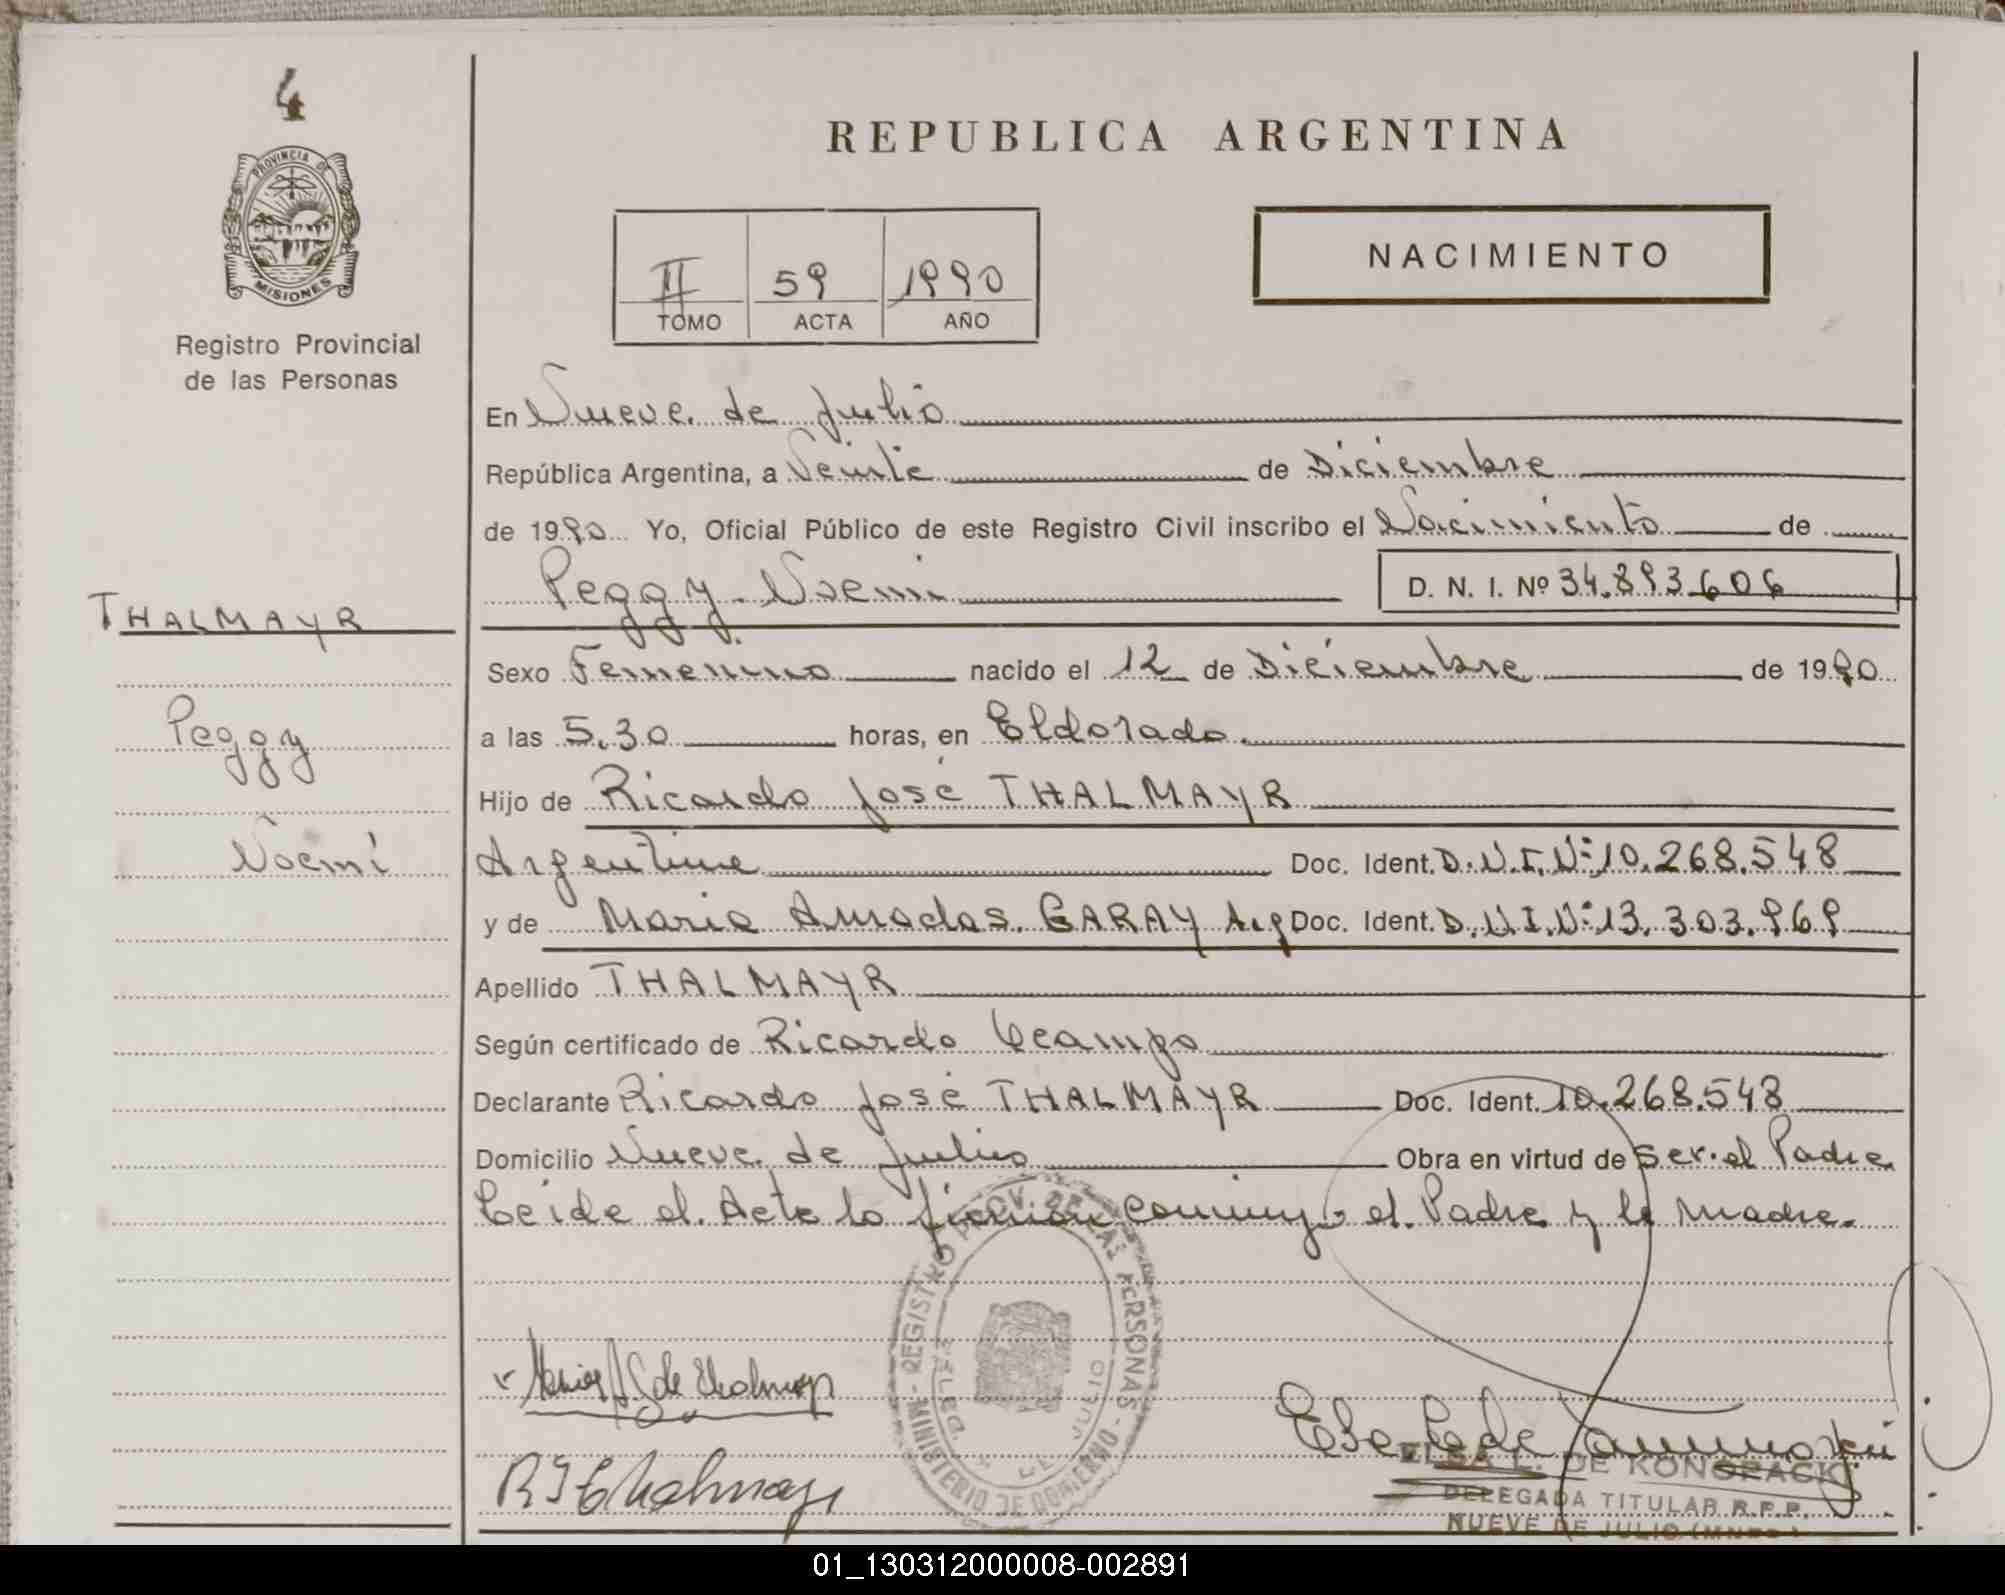 4
PROVINCIA DE
MISIONES
Registro Provincial
de las Personas
THALMAYR
Peggy
Noemí
REPUBLICA ARGENTINA
II 59 1990
TOMO ACTA AÑO
NACIMIENTO
En Nueve de Julio
República Argentina, a Veinte de Diciembre
de 1990 Yo, Oficial Público de este Registro Civil inscribo el Nacimiento de
Peggy Noemi D. N. I. Nº 34.893.606
Sexo Femenino nacido el 12 de Diciembre de 1990
a las 5.30 horas, en Eldorado.
Hijo de Ricardo José THALMAYR
Argentino Doc. Ident. D.N.I. Nº 10.268.548
y de Maria Amadas GARAY Arg Doc. Ident. D.N.I. Nº 13.303.969
Apellido THALMAYR
Según certificado de Ricardo Ocampo
Declarante Ricardo José THALMAYR Doc. Ident. 10.268.548
Domicilio Nueve de Julio Obra en virtud de ser el Padre
Leida el Acta la firman conmigo el Padre y la Madre.
REGISTRO PROV. DE LAS PERSONAS - MINISTERIO DE GOBIERNO -
JULIO
ELSA L. DE KONOPACKI
DELEGADA TITULAR R.P.P.
NUEVE DE JULIO (MNES.)
01_130312000008-002891